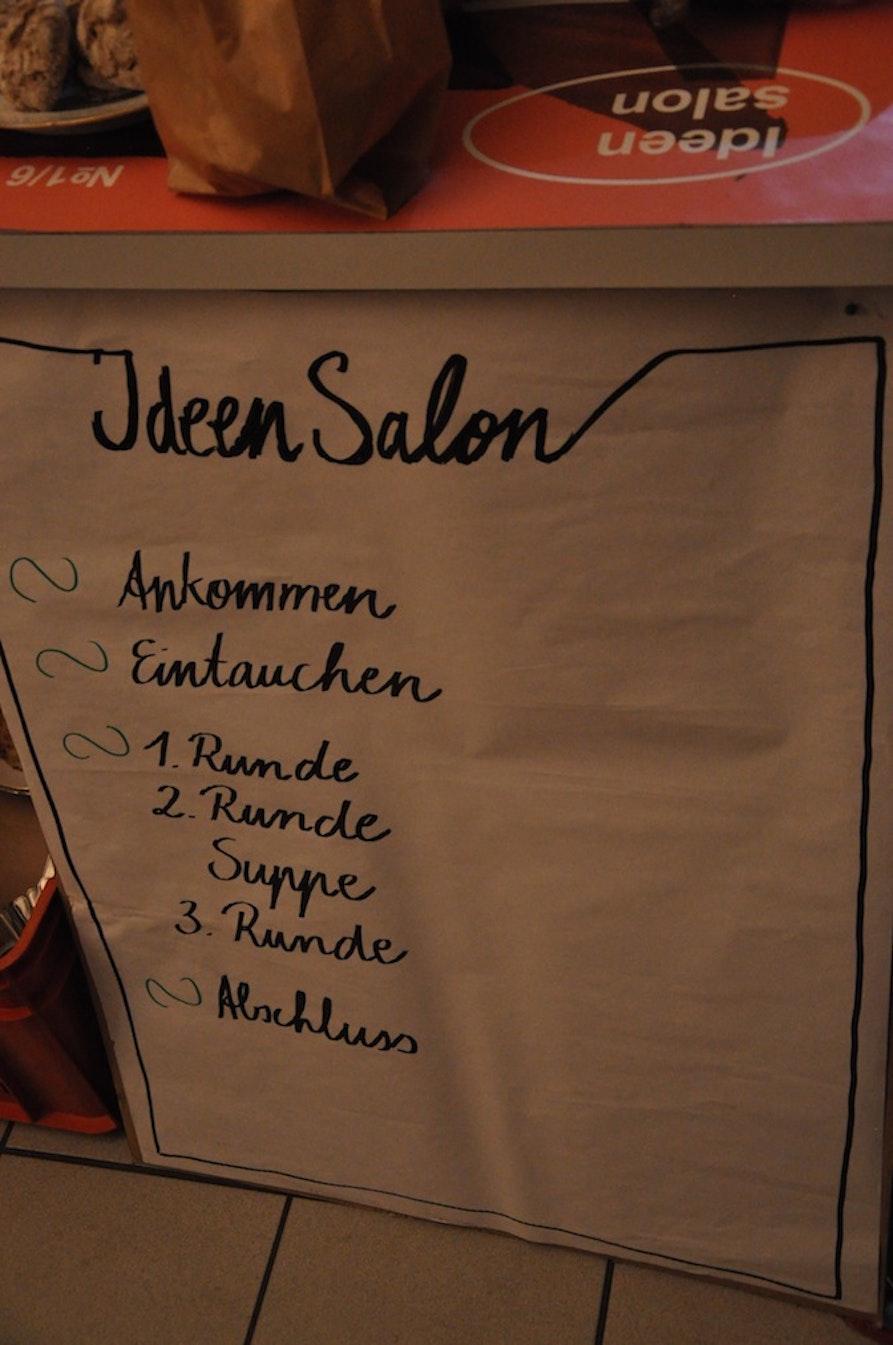 Ideen
salon
№1/6
IdeenSalon
Ankommen
Eintauchen
1. Runde
2. Runde
Suppe
3. Runde
Abschluss